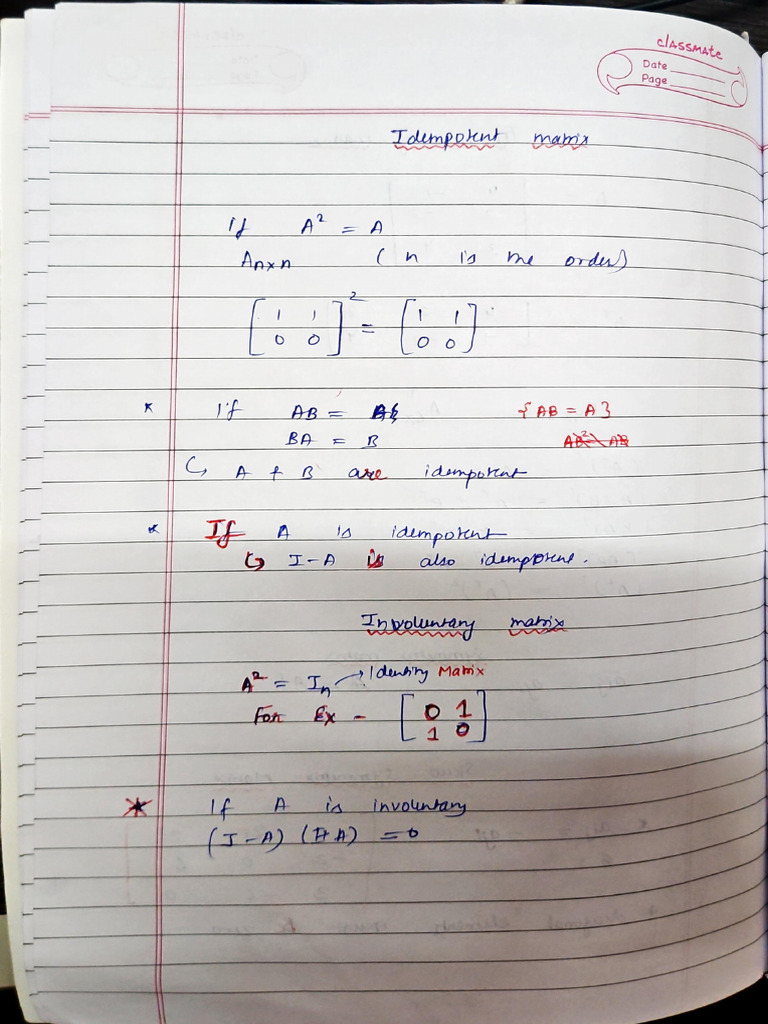 classmate
Date
Page
Idempotent matrix
If A² = A
Anxn (n is the order)
[1 1
0 0]² = [1 1
0 0]
* If AB = A {AB = A}
BA = B
↳ A & B are idempotent
* If A is idempotent
↳ I-A is also idempotent.
Involuntary matrix
A² = In → Identity Matrix
For Ex - [0 1
1 0]
* If A is involuntary
(I-A) (I+A) = 0